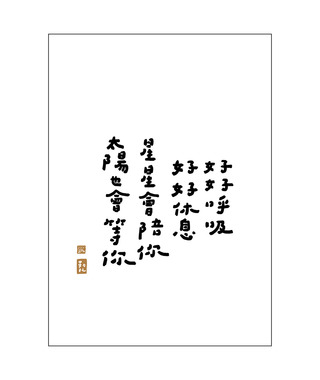 好好呼吸
好好休息
星星會陪你
太陽也會等你